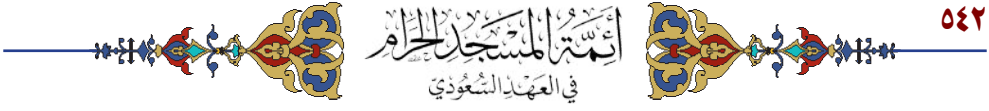 ٥٤٢
أئمة المسجد الحرام
في العهد السعودي